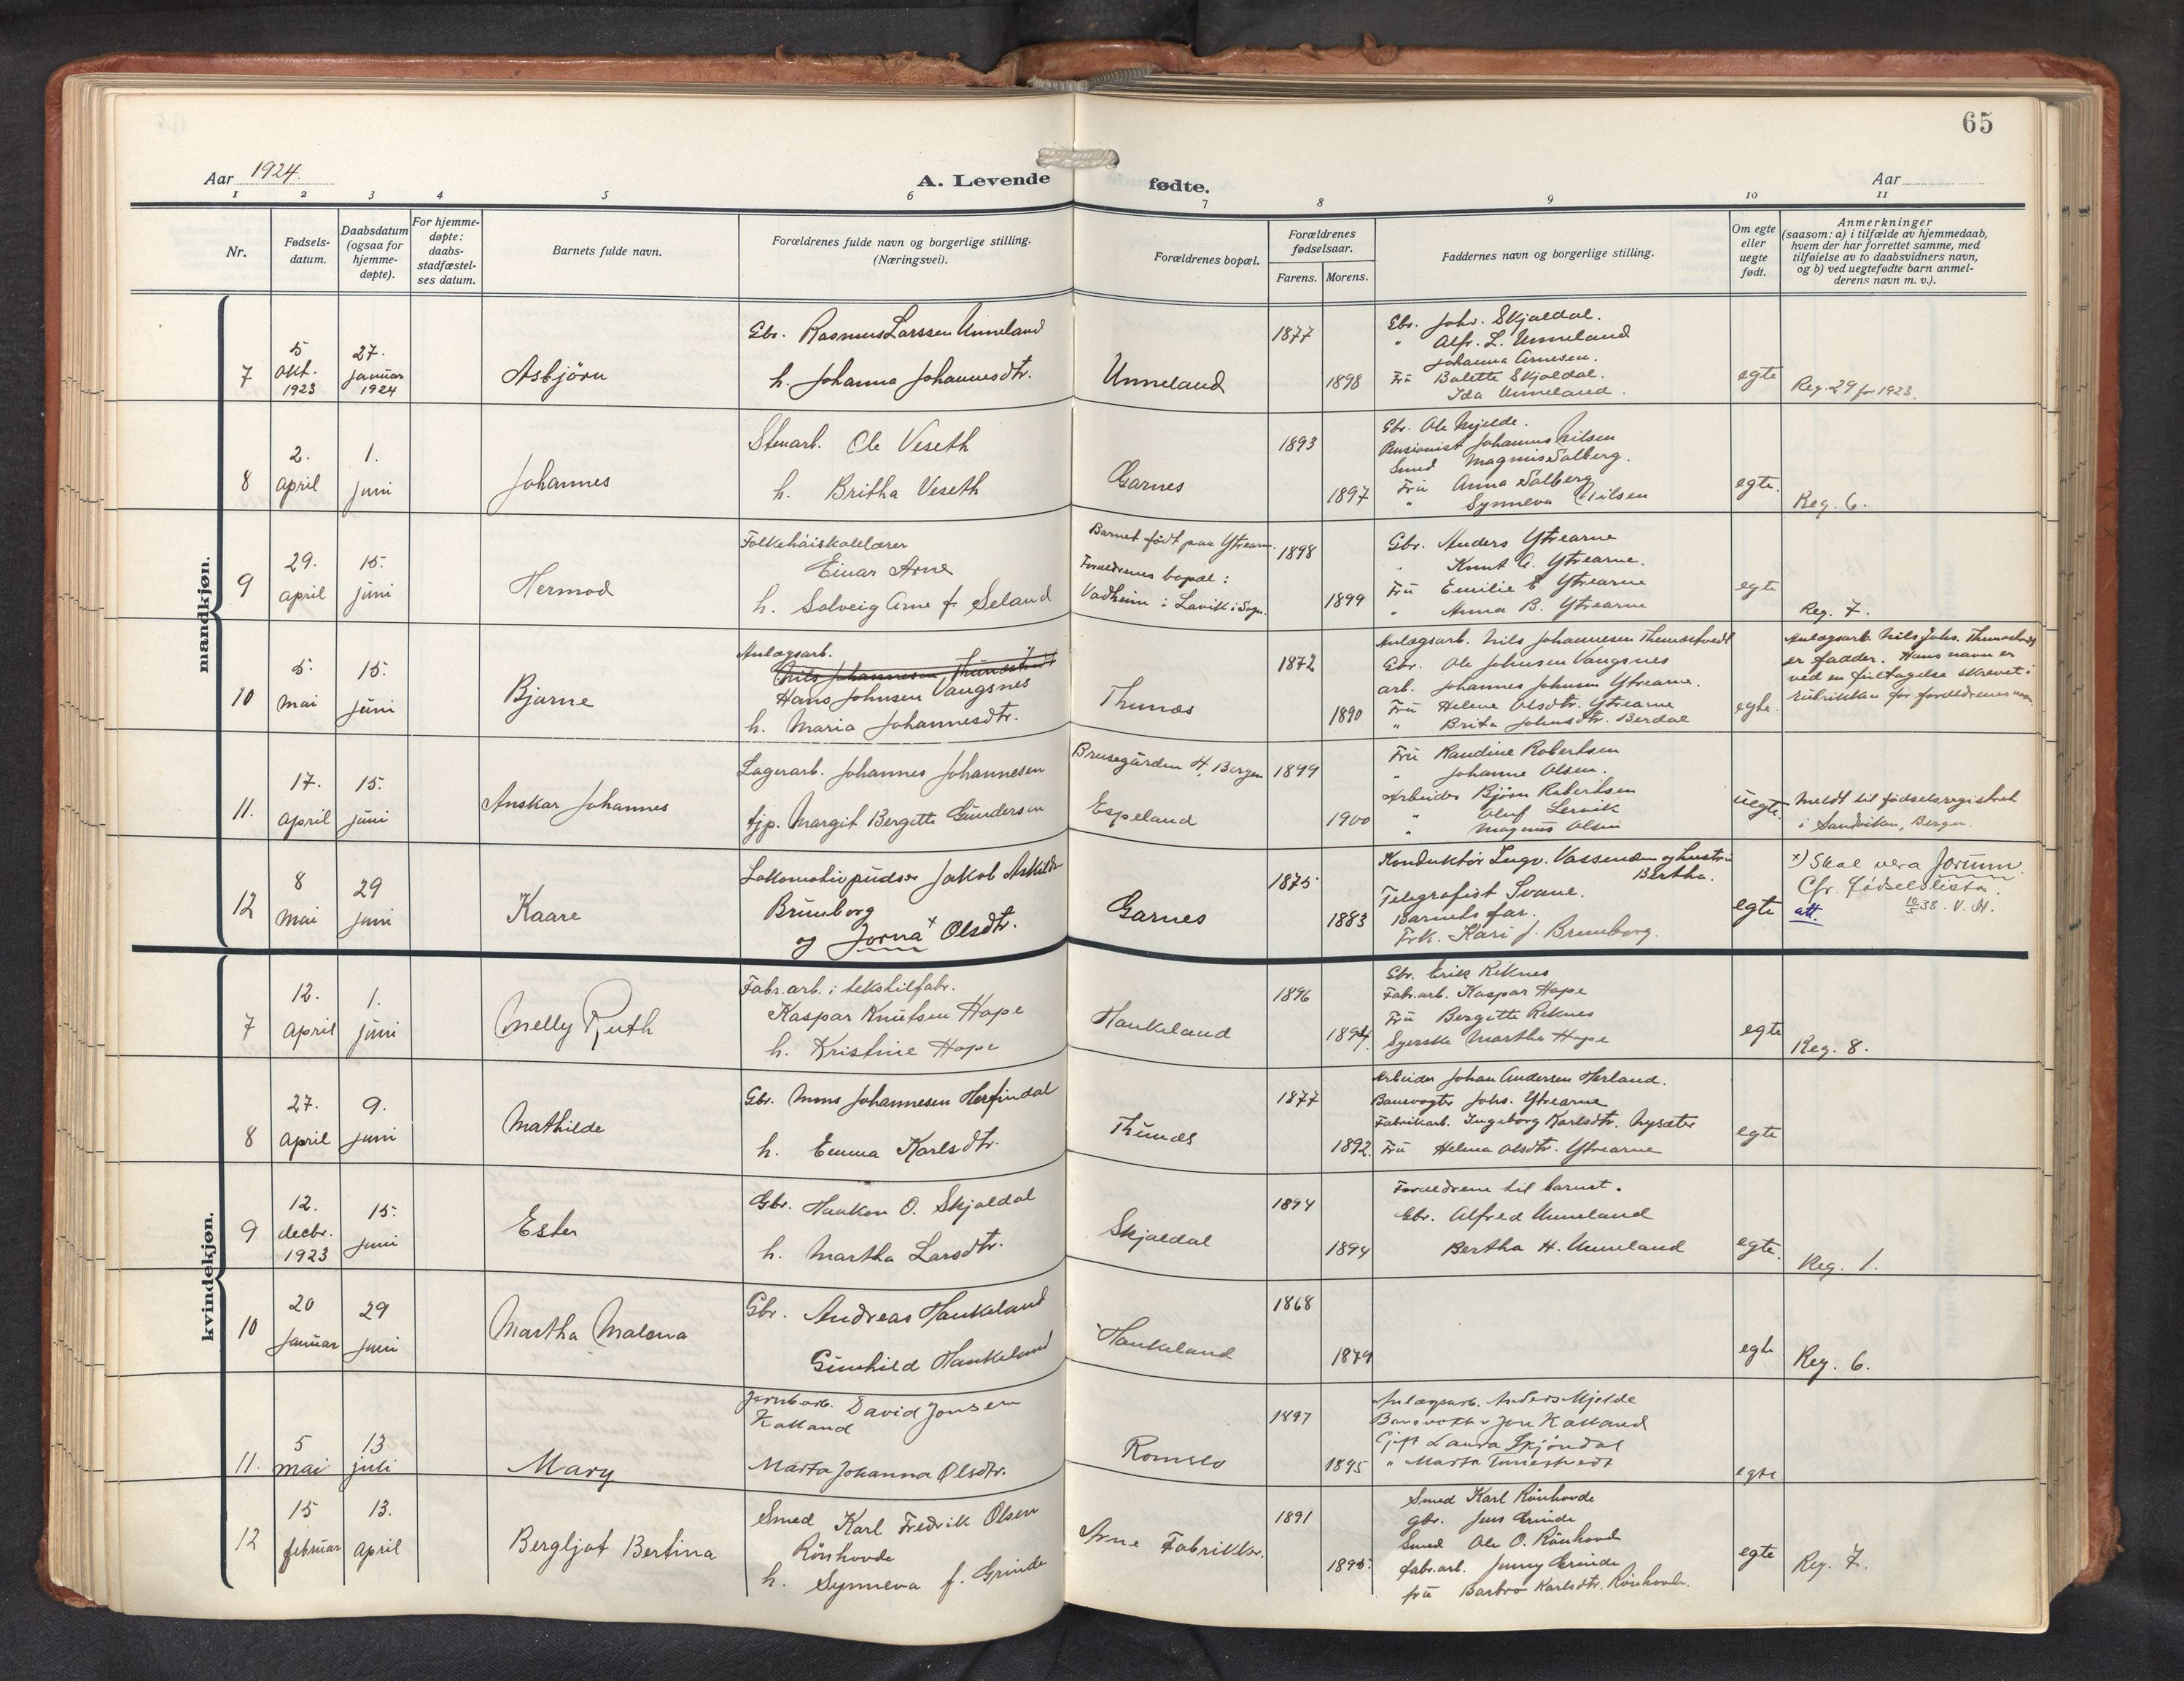 65
Aar 1924.
A. Levende fødte.
Aar
1 2 3 4 5 6 7 8 9 10 11
Nr.
Fødsels-
datum.
Daabsdatum
(ogsaa for
hjemme-
døpte).
For hjemme-
døpte:
daabs-
stadfæstel-
ses datum.
Barnets fulde navn.
Forældrenes fulde navn og borgerlige stilling.
(Næringsvei).
Forældrenes bopæl.
Forældrenes
fødselsaar.
Farens. Morens.
Faddernes navn og borgerlige stilling.
Om egte
eller
uegte
født.
Anmerkninger
(saasom: a) i tilfælde av hjemmedaab,
hvem der har forrettet samme, med
tilføielse av to daabsvidners navn,
og b) ved uegtefødte barn anmel-
derens navn m. v.).
mandkjøn.
7
5
okt.
1923
27.
januar
1924
Asbjörn
Gbr. Rasmus Larssen Unneland
h. Johanna Johannesdtr.
Unneland
1877
1898
Gbr. Johs. Skjaldal.
" Alfr. L. Unneland
Johanna Arnesen.
Fru Balette Skjoldal.
Ida Unneland.
egte
Reg. 29 for 1923.
8
2.
april
1.
juni
Johannes
Stenarb. Ole Veseth
h. Britha Veseth
Garnes
1893
1897
Gbr. Ole Mjelde.
Pensionist Johannes Nilsen
Smed Magnus Salberg.
Fru Anna Salberg
" Synneva Nilsen
egte.
Reg. 6.
9
29.
april
15.
juni
Hermod
Folkehöiskolelærer
Einar Arne
h. Solveig Arne f. Seland
Barnet födt paa Ytrearne.
Forældrenes bopæl:
Vadheim i Lavik i Sogn.
1898
1899
Gbr. Anders Ytrearne
" Knut A. Ytrearne.
Fru Emilie E Ytrearne
" Anna B. Ytrearne
egte
Reg. 7.
10
5.
mai
15.
juni
Bjarne
Anlægsarb.
Nils Johannesen Thunestvedt
Hans Johnsen Vangsnes
h. Maria Johannesdtr.
Thunæs
1872
1890
Anlægsarb. Nils Johannesen Thunestvedt
Gbr. Ole Johnsen Vangsnes
arb. Johannes Johnsen Ytrearne.
Fru Helene Olsdtr. Ytrearne
" Brita Johnsdtr. Berdal
egte.
Anlægsarb. Nils Johs. Thunestvedt
er fadder. Hans navn er
ved en feiltagelse skrevet i
rubrikken for forældrenes navn.
11.
17.
april
15.
juni
Anskar Johannes
Lagerarb. Johannes Johannesen
tjp. Margit Bergitte Gundersen
Brusegården 4, Bergen
Espeland
1899
1900
Fru Randine Robertsen
" Johanne Olsen.
Arbeider Björn Robertsen
" Olaf Lervik
" Magnus Olsen
uegte.
Meldt til fødselsregistret
i Sandviken, Bergen.
12
8
mai
29
juni
Kaare
Lokomotivpudser Jakob Askilds
Brunborg
og Jorna x Olsdtr.
Garnes
1875
1883
Konduktör Ingv. Vassenden og hustru
Bertha.
Telegrafist Svane.
Barnets far.
Frk. Kari J. Brunborg.
egte
x) Skal vera Jorunn
Cfr. födselslista.
10/5 38. V. H.
att.
kvindekjøn.
7
12.
april
1.
juni
Melly Ruth
Fabr.arb. i tekstilfabr.
Kaspar Knutsen Hope
h. Kristine Hope
Haukeland
1896
1894.
Gbr. Erik Reknes
Fabr.arb. Kaspar Hope
Fru Bergitte Reknes
Syerske Martha Hope
egte
Reg. 8.
8
27.
april
9.
juni
Mathilde
Gbr. Mons Johannesen Herfindal
h. Emma Karlsdtr.
Thunes
1877
1892.
Arbeider Johan Andersen Herland.
Banevogter Johs. Ytrearne
Fabrikarb. Ingeborg Karlsdtr. Nysæter
Fru Helena Olsdtr. Ytrearne
egte
9
12.
decbr.
1923
15.
juni
Ester
Gbr. Haakon O. Skjoldal
h. Martha Larsdtr.
Skjoldal
1894
1894
Forældrene til barnet.
Gbr. Alfred Unneland
Bertha H. Unneland
egte.
Reg. 1.
10
20
januar
29
juni
Martha Malena
Gbr. Andreas Haukeland
Gunhild Haukeland
Haukeland
1868
1879
egte
Reg. 6.
11.
5
mai
13
juli
Mary
Jernb.arb. David Jonsen
Kalland
Marta Johanna Olsdtr.
Romslo
1897
1895
Anlægsarb. Anders Mjelde
Banevokter Jon Kalland
Gift Laura Skjöndal
" Marta Tunestvedt
egte
12
15
februar
13.
april
Bergljot Bertina
Smed Karl Fredrik Olsen
Rönhovde
h. Synneva f. Grinde
Arne Fabrikker.
1891
1895.
Smed Karl Rönhovde
gbr. Jens Grinde
Smed Ole O. Rönhovde
fabr.arb. Jenny Grinde
fru Barbro Karlsdtr. Rönhovde.
egte
Reg. 7.